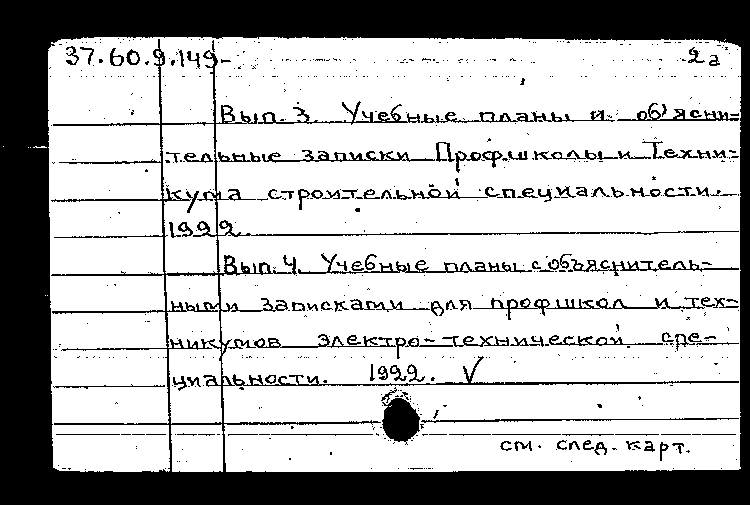 37.60.9.149- 2а
Вып. 3. Учебные планы и об'ясни=
тельные записки Профшколы и Техни-
кума строительной специальности.
1922.
Вып. 4. Учебные планы с объяснитель-
ными записками для профшкол и тех-
никумов электро-технической спе-
циальности. 1922. V
см. след. карт.